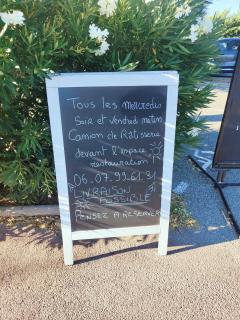 Tous les mercredis
Soir et vendredi matin
Camion de Rôtisserie
devant l'espace
restauration
06.07.99.61.31
LIVRAISON
POSSIBLE
PENSEZ A RESERVER